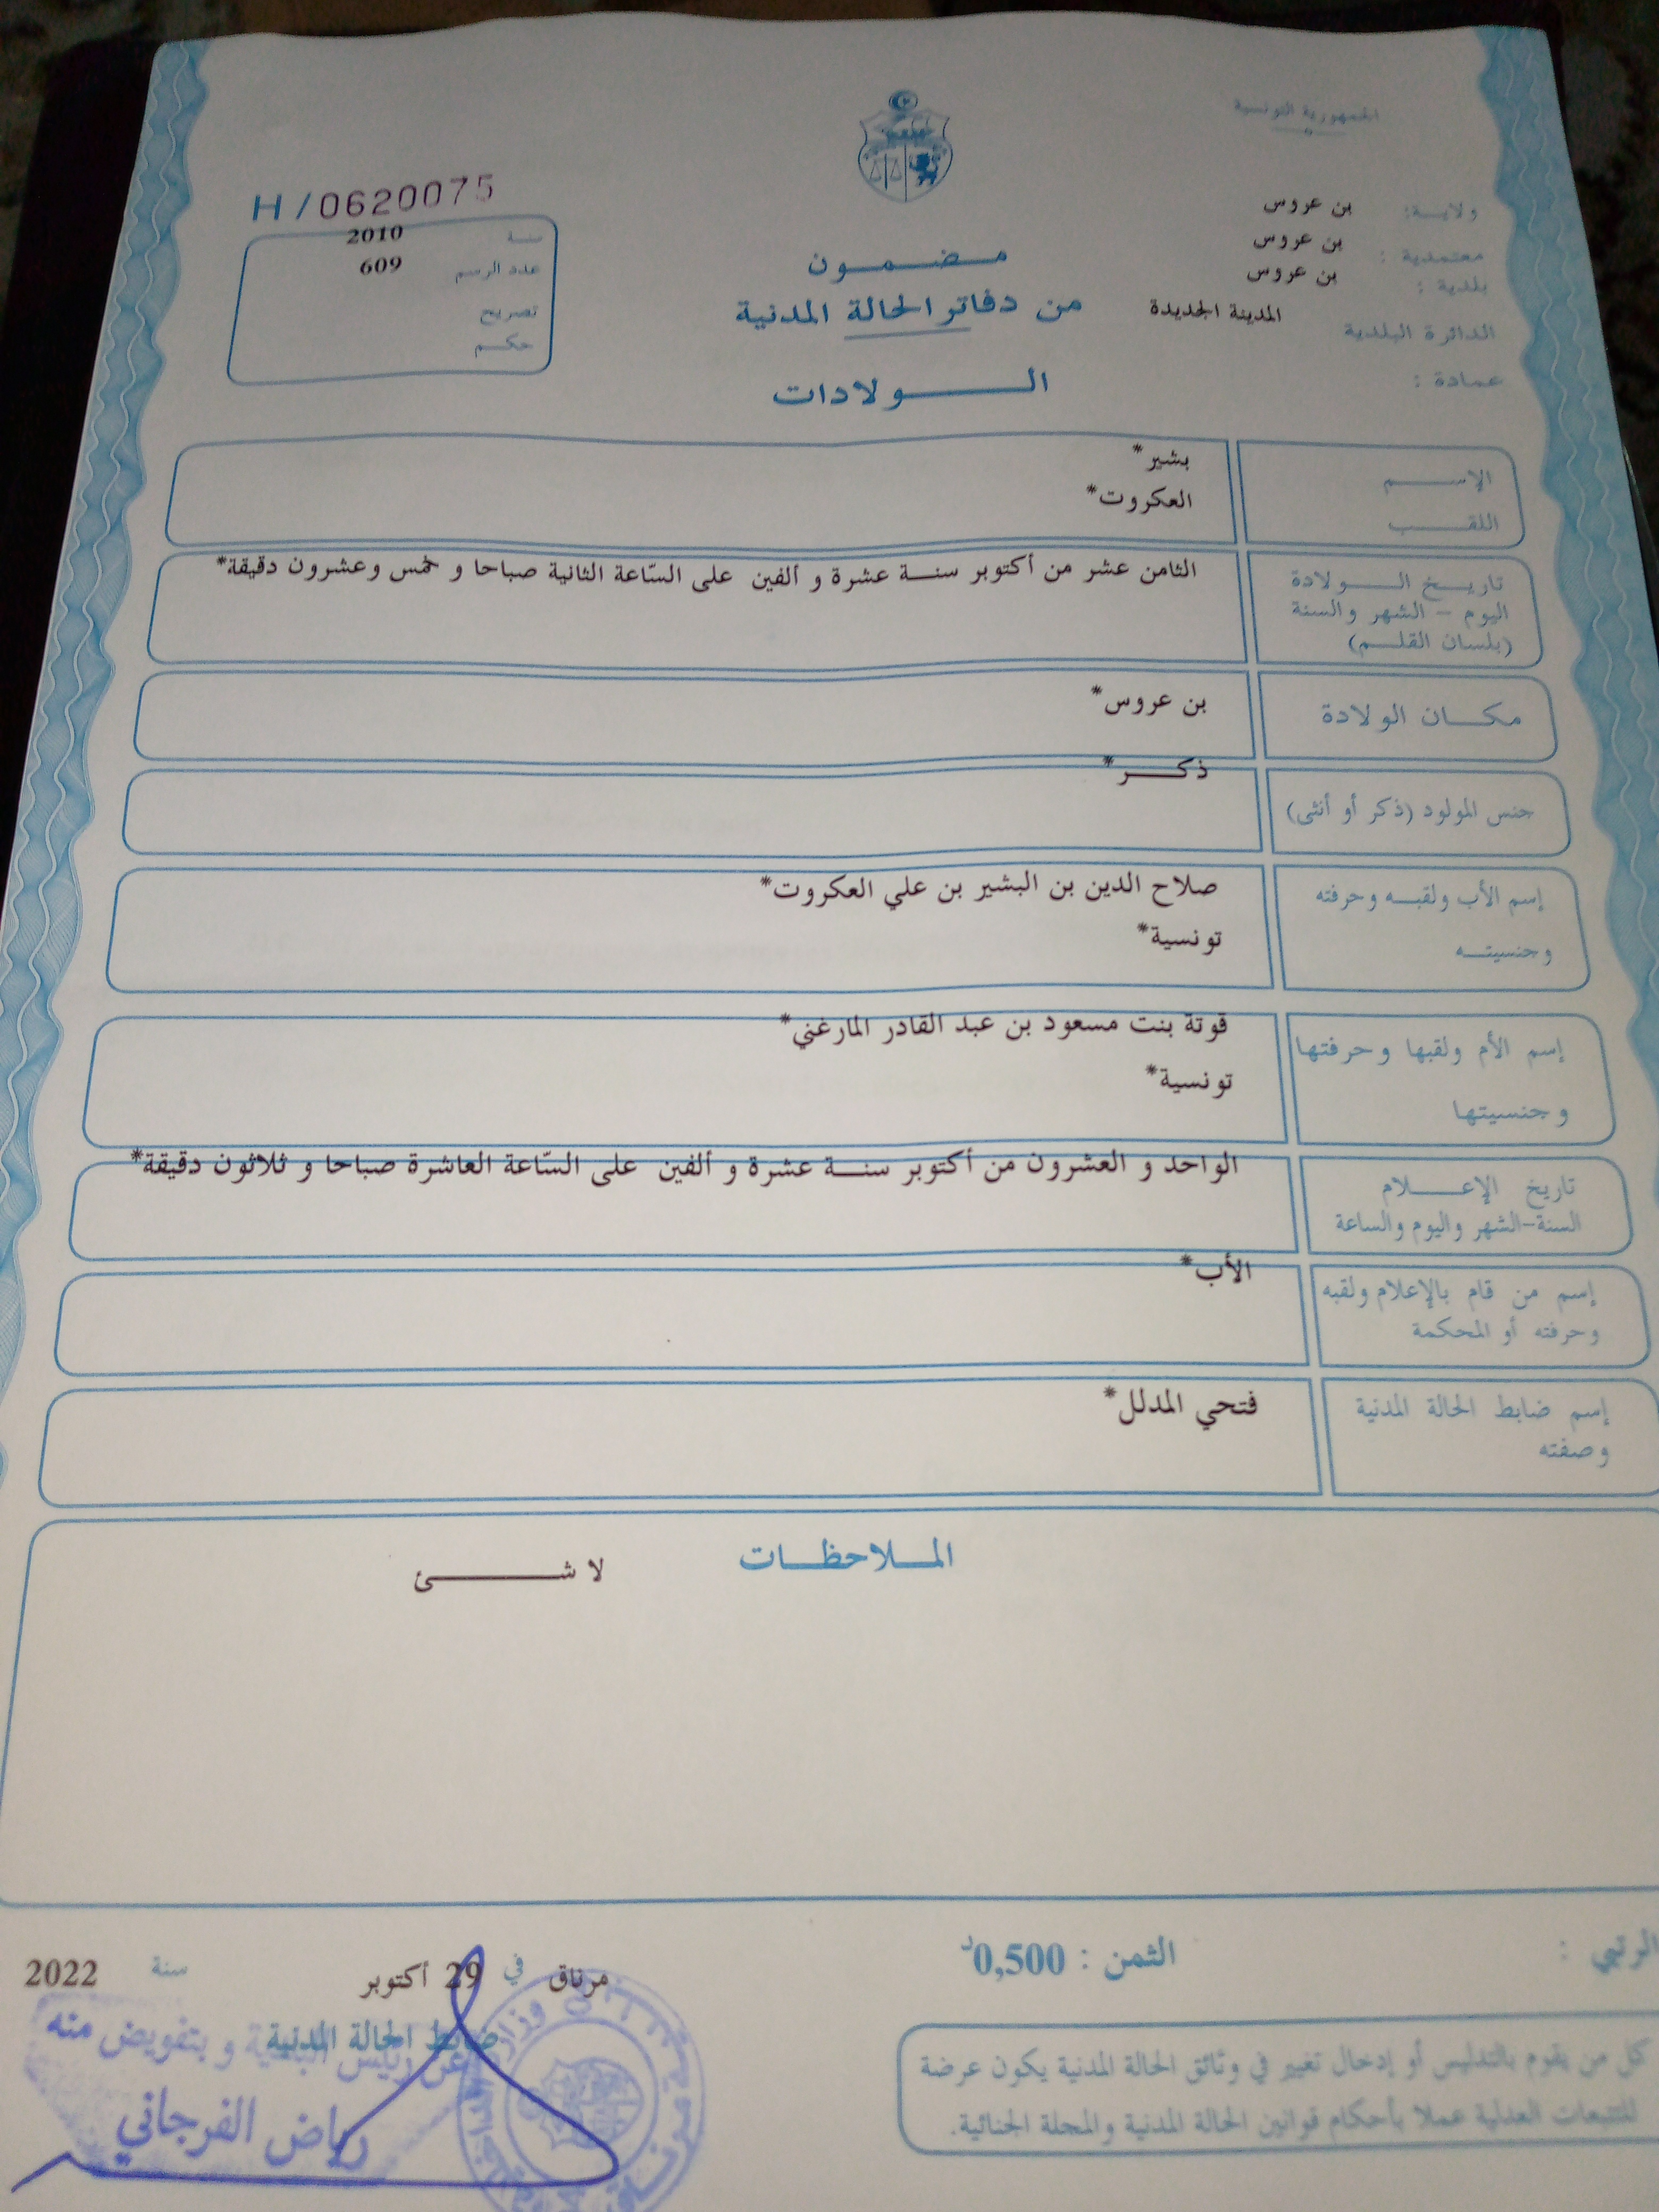 الجمهورية التونسية
H/0620075
سنة 2010
عدد الرسم 609
تصريح
حكم
مضمون
من دفاتر الحالة المدنية
الولادات
ولاية: بن عروس
معتمدية : بن عروس
بلدية : بن عروس
الدائرة البلدية المدينة الجديدة
عمادة :
الإسم بشير*
اللقب العكروت*
تاريخ الولادة الثامن عشر من أكتوبر سنة عشرة و ألفين على السّاعة الثانية صباحا و خمس وعشرون دقيقة*
اليوم - الشهر والسنة
(بلسان القلم)
مكان الولادة بن عروس*
جنس المولود (ذكر أو أنثى) ذكر*
إسم الأب ولقبه وحرفته صلاح الدين بن البشير بن علي العكروت*
وجنسيته تونسية*
إسم الأم ولقبها وحرفتها قوتة بنت مسعود بن عبد القادر المارغني*
وجنسيتها تونسية*
تاريخ الإعلام الواحد و العشرون من أكتوبر سنة عشرة و ألفين على السّاعة العاشرة صباحا و ثلاثون دقيقة*
السنة-الشهر واليوم والساعة
إسم من قام بالإعلام ولقبه الأب*
وحرفته أو المحكمة
إسم ضابط الحالة المدنية فتحي المدلل*
وصفته
الملاحظات
لا شئ
الرتبي :
الثمن : 0,500د
مرناق في 29 أكتوبر سنة 2022
ضابط الحالة المدنية
عن رئيس البلدية و بتفويض منه
رياض الفرجاني
كل من يقوم بالتدليس أو إدخال تغيير في وثائق الحالة المدنية يكون عرضة
للتتبعات العدلية عملا بأحكام قوانين الحالة المدنية والمجلة الجنائية.